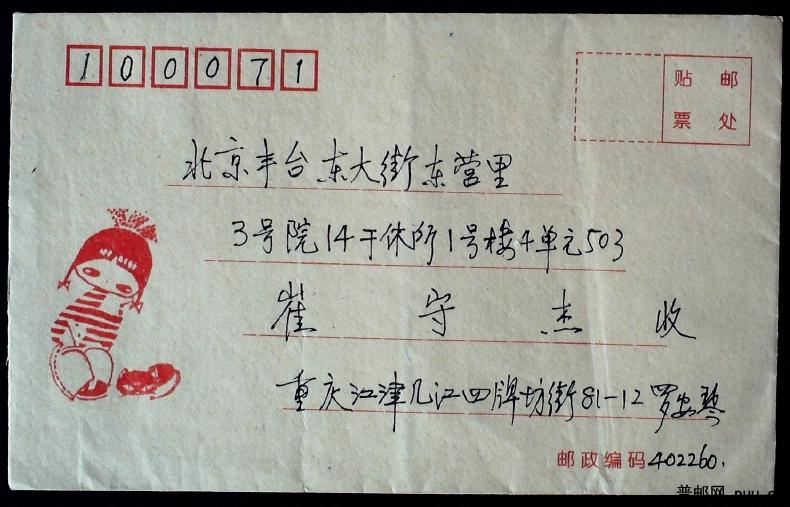 100071
贴 邮
票 处
北京丰台东大街东营里
3号院14干休所1号楼4单元503
崔 守 杰 收
重庆江津几江四牌坊街81-12 罗安琴
邮政编码402260.
普邮网